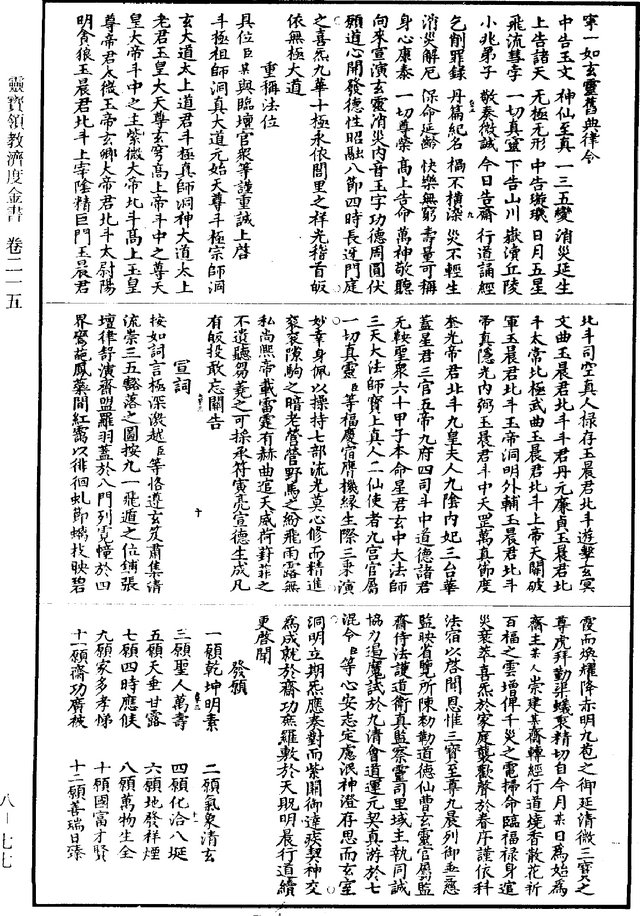 寧一如玄靈舊典律令
中告玉文　神仙至真　一三五變　消災延生
上告諸天　無極無形　中告璇璣　日月五星
飛流彗孛　一切真靈　下告山川　嶽瀆丘陵
小兆弟子　敬奏微誠　今日告齋　行道誦經
乞削罪錄　丹篇紀名　禍不橫染　災不輕生
消災解厄　保命延齡　快樂無窮　壽量可稱
身心康泰　一切尊榮　高上告命　萬神敬聽
向來宣演玄靈消災內音玉字功德周圓伏
願道心開發德性昭融八節四時長迓門庭
之喜炁九華十極永依閭里之祥光稽首皈
依無極大道
重稱法位
具位臣某與臨壇官眾等謹重誠上啓
斗極祖師洞真大道元始天尊斗極宗師洞
玄大道太上道君斗極真師洞神大道太上
老君玉皇大天尊玄穹高上帝斗中之尊天
皇大帝斗中之主紫微大帝北斗高上玉皇
尊帝君太微玉帝玄卿大帝君北斗太尉陽
明貪狼玉晨君北斗上宰陰精巨門玉晨君
北斗司空真人祿存玉晨君北斗遊擊玄冥
文曲玉晨君北斗斗君丹元廉貞玉晨君北
斗太常北極武曲玉晨君北斗上帝天關破
軍玉晨君北斗玉帝洞明外輔玉晨君北斗
帝真隱光內弼玉晨君斗中天罡萬真節度
奎光帝君北斗九皇夫人九陰內妃三台華
蓋星君三官五帝九府四司斗中道德諸君
无鞅聖眾六十甲子本命星君玄中大法師
三天大法師寶上真人二仙使者九宮官屬
一切真靈臣等福慶宿膺機緣生際三乘演
妙幸身佩以操持七部流光莫心修而精進
裒裒隙駒之暗老營營野馬之紛飛雨露無
私尚熙帝載雷霆有赫曲逭天威荷葑菲之
不遺聽芻蕘之可採承符寅亮宣德生成凡
有皈投敢忘關告
宣詞
按如詞言極深激越臣等恪遵玄笈肅集清
流崇三五豁落之圖按九一飛遁之位鋪張
壇律舒演齋盟羅羽蓋於八門列霓幢於四
界鸞旍鳳藥間紅靄以徘徊虬節螭杖映碧
霞而煥耀降赤明九苞之御延清微三寶之
尊虎拜勤渠蟻聚精切自今月某日為始為
齋主某人崇建某齋轉經行道燒香散花祈
百福之雲增俾千災之電掃命臨福祿身逭
災衰萃喜炁於家庭襲歡聲於眷序謹依科
法宿以啓聞恩惟三寶至尊九晨列御垂慈
監映省覽所陳勑勒道德仙曹玄靈官屬監
齋侍法護道衛真監察靈司里域主執同誠
協力追魔試於九清會道運元契真游於七
混令臣等心安志定慮泯神澄存思而玄室
洞明立期炁應奏對而紫闕御達疾契神交
為成就於齋功庶羅敷於天貺明晨行道續
更啓聞
發願
一願乾坤明素　二願氣象清玄
三願聖人萬壽　四願化洽八埏
五願天垂甘露　六願地發祥煙
七願四時應候　八願萬物生全
九願家多孝悌　十願國富才賢
十一願齋功廣被　十二願善瑞日臻
靈寶領教濟度金書　卷二一五
八—七七